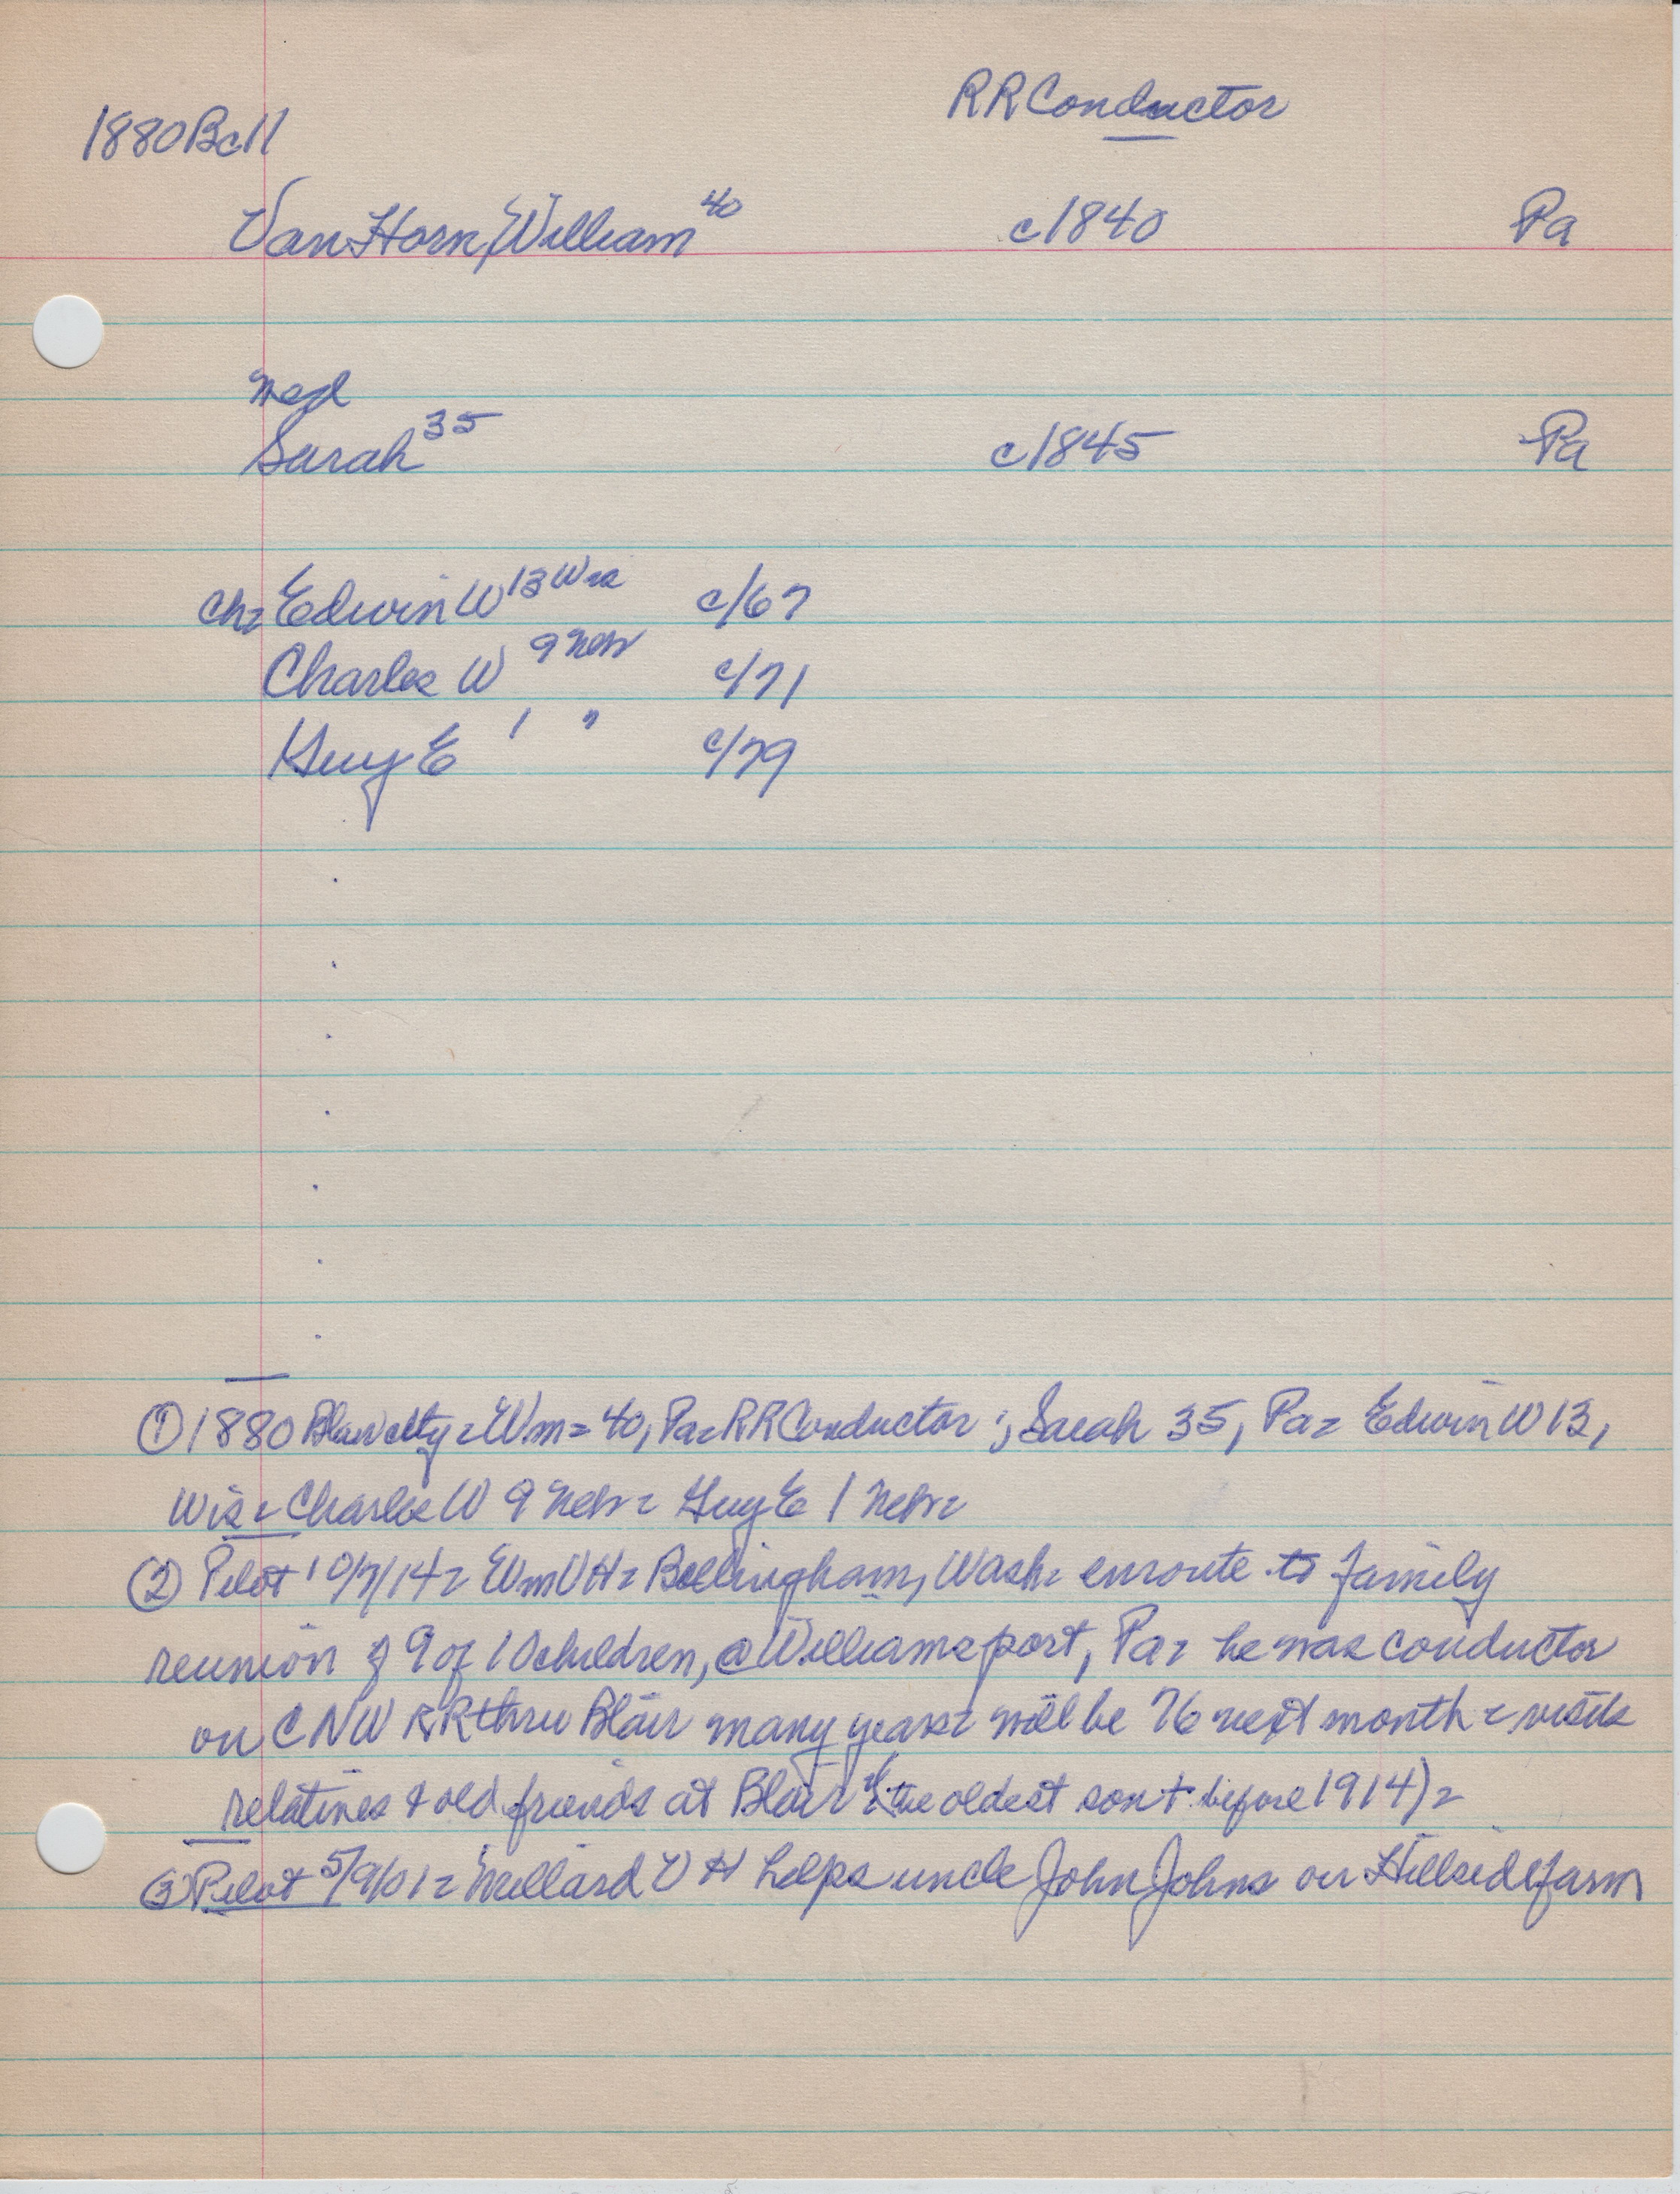 RR Conductor
1880 Bcl1
Van Horn, William 40 c1840 Pa
med
Sarah 35 c1845 Pa
ch= Edwin W 13 Wis c/67
Charles W 9 Nebr c/71
Guy E 1 " c/79
① 1880 Blair city = Wm = 40, Pa = RR Conductor; Sarah 35, Pa = Edwin W 13,
Wis = Charles W 9 Nebr = Guy E 1 Nebr =
② Pilot 10/7/14 = Wm VH = Bellingham, Wash = enroute to family
reunion of 9 of 10 children, @ Williamsport, Pa = he was conductor
on CNW RR thru Blair many years = will be 76 next month = visits
relatives & old friends at Blair (the oldest son + before 1914) =
③ Pilot 5/9/01 = Millard VH helps uncle John Johns on Hillside farm